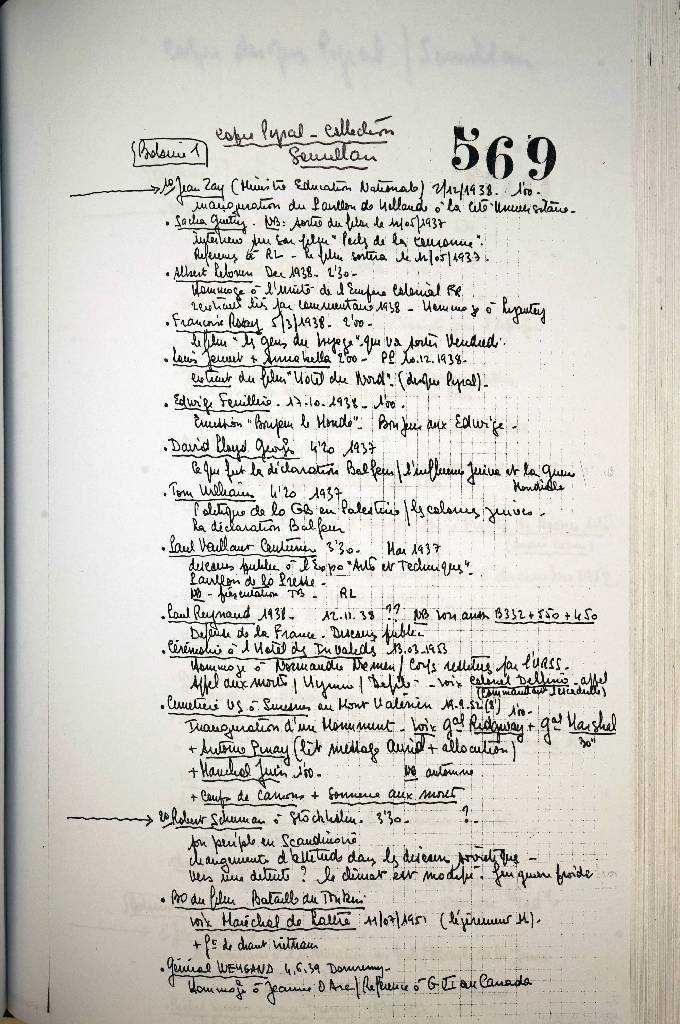 Copie Pyral - Collection
569
Bobine 1
1° Jean Zay (Ministre Education Nationale) 2/12/1938. 1'00.
inauguration du Pavillon de Hollande à la Cité Universitaire.
• Sacha Guitry. NB: sortie du film le 11/05/1937
interview sur son film "Perles de la Couronne".
Reference à RL - le film sortira le 11/05/1937.
• Albert Lebrun Dec 1938. 2'30.
Hommage à l'Unité de l'Empire Colonial FR
par commentaire 1938 - Hommage à Lyautey
• Françoise Rosay 5/3/1938. 2'00.
le film "les gens du Voyage" que va sortir Vendredi.
• Louis Jouvet + Annabella 2'00 - PP 10.12.1938.
extrait du film "Hotel du Nord". (disque Pyral).
• Edwige Feuillère. 17.10.1938. 1'00.
Emission "Bonjour le Monde". Bonjour aux Edwige.
• David Lloyd George 4'20 1937
Ce que fut la déclaration Balfour/l'influence Juive et la Guerre
Mondiale
• Tom Williams 4'20 1937
Politique de la GB en Palestine/les colonies juives.
La déclaration Balfour
• Paul Vaillant Couturier 3'30. Mai 1937
discours public à l'Expo "Arts et Techniques".
Pavillon de la Presse.
NB - présentation TB. RL
• Paul Reynaud 1938. 12.11.38 ?? NB voir aussi B332+550+450
Defense de la France. Discours public
• Cérémonie à l'Hotel des Invalides 13.03.1953
Hommage à Normandie Niemen/Corps restitués par l'URSS.
Appel aux morts/Hymne/Defilé - voix Colonel Delfino - appel
(Commandant l'escadrille)
• Cimetière US à Suresnes au Mont Valérien 1'00.
Inauguration d'un Monument - voix Gal Ridgway + Gal Marshal
30"
+ Antoine Pinay (lit message Auriol + allocution)
+ Maréchal Juin 1'00. NB automne
+ Coups de Canons + Sonnerie aux morts
2° Robert Schuman à Stockholm. 3'30 - ?
son periple en Scandinavie
changements d'attitude dans les discours soviétique -
vers une detente ? le climat est modifié. fin guerre froide
• BO du film Bataille du Tonkin
voix Maréchal de Lattre 11/07/1951 (légèrement H).
+ fd de chant vietnam
• Général WEYGAND 4.6.39 Domremy.
Hommage à Jeanne d'Arc/Reference à G VI au Canada